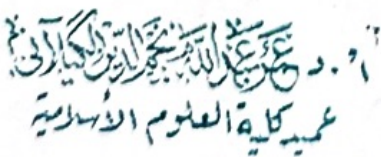 أ.د عمر عبدالله نجم الدين الكيلاني
عميد كلية العلوم الأسلامية